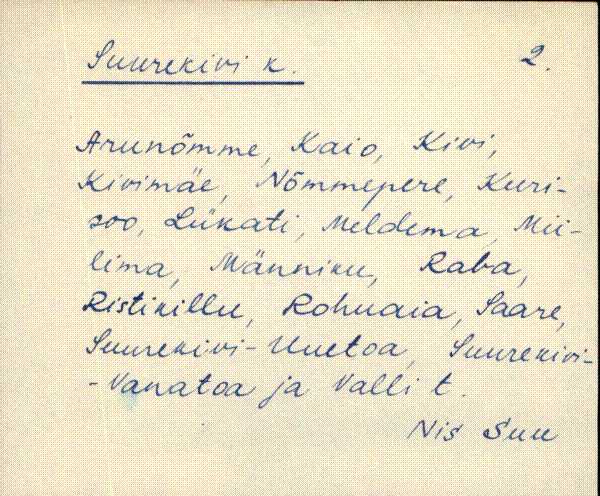 Suurekivi k. 2.
Arunõmme, Kaio, Kivi,
Kivimäe, Nõmmepere, Kuri-
soo, Lükati, Meldema, Mii-
lima, Männiku, Raba,
Ristikillu, Rohuaia, Saare,
Suurekivi-Uuetoa, Suurekivi-
-Vanatoa ja Valli t.
Nis Suu